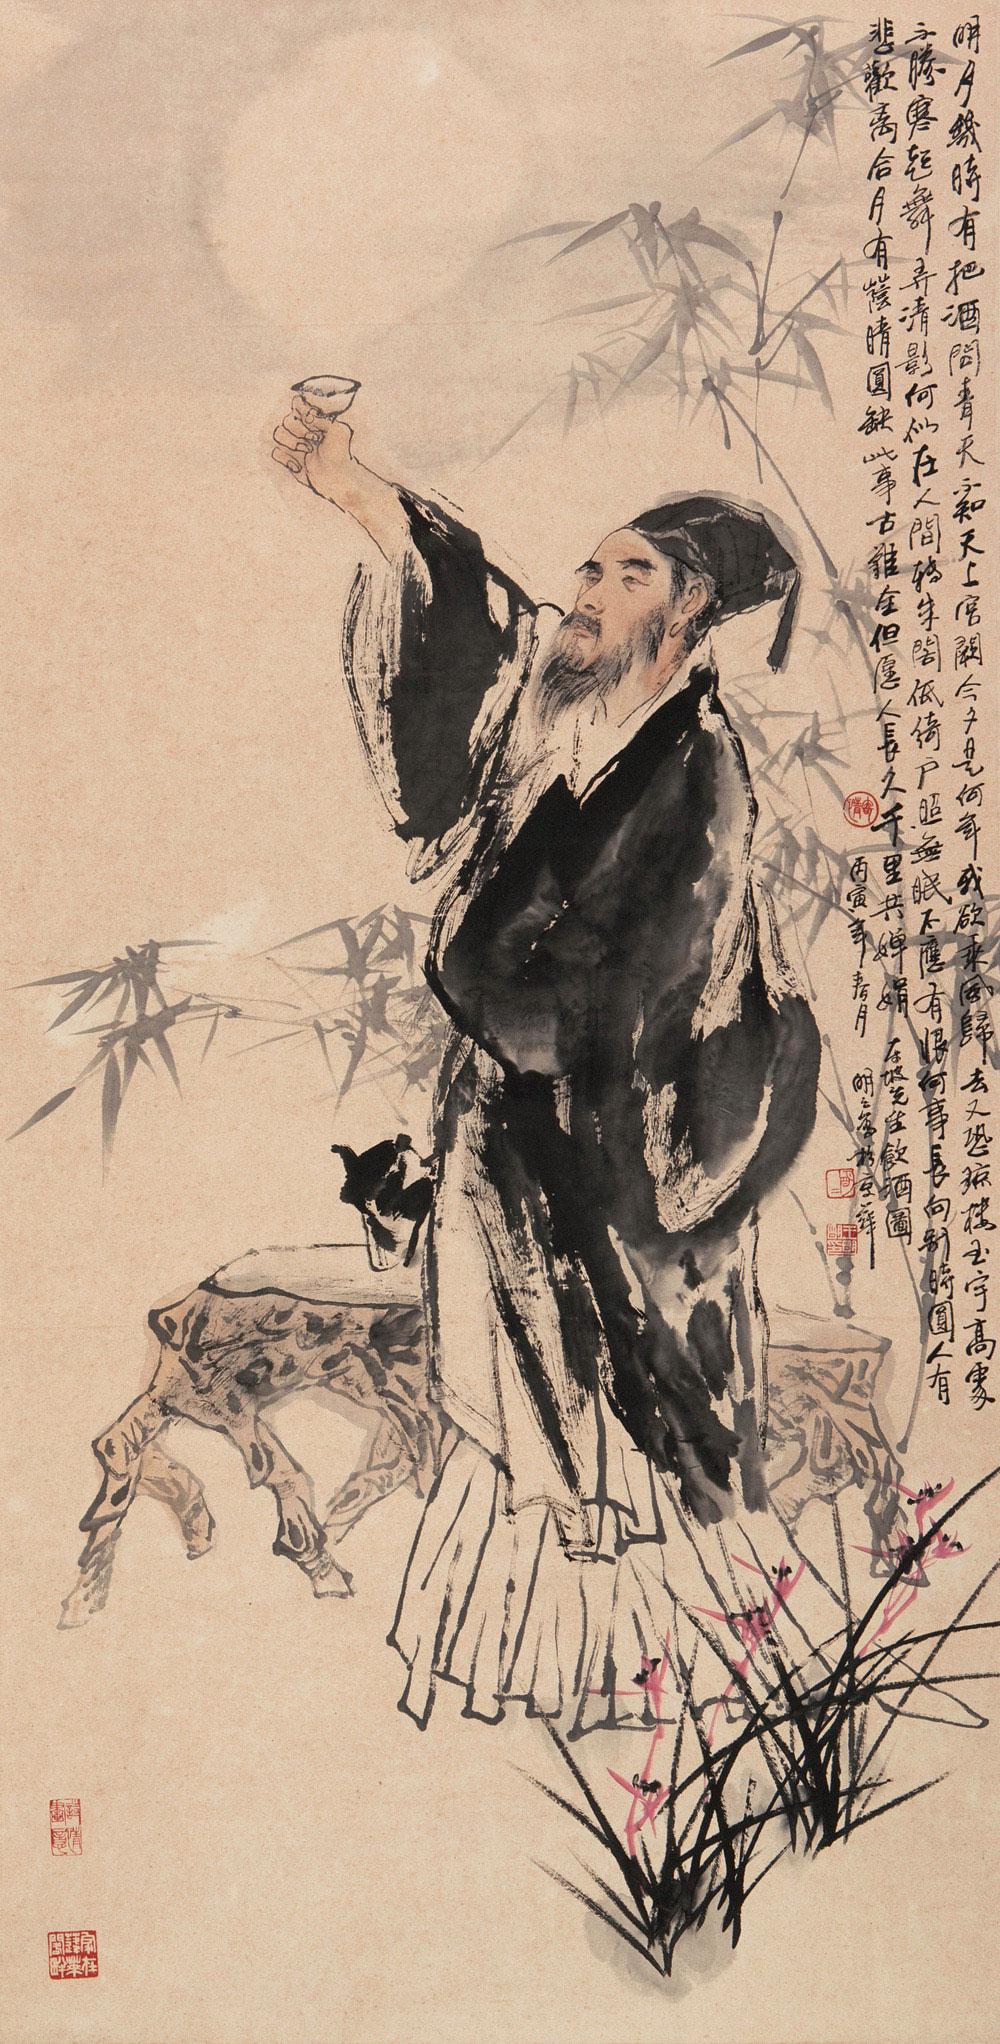 明月幾時有把酒問青天不知天上宮闕今夕是何年我欲乘風歸去又恐瓊樓玉宇高處
不勝寒起舞弄清影何似在人間轉朱閣低綺戶照無眠不應有恨何事長向別時圓人有
悲歡離合月有蔭晴圓缺此事古難全但愿人長久千里共嬋娟 東坡先生飲酒圖
丙寅年春月 明明寫於京華